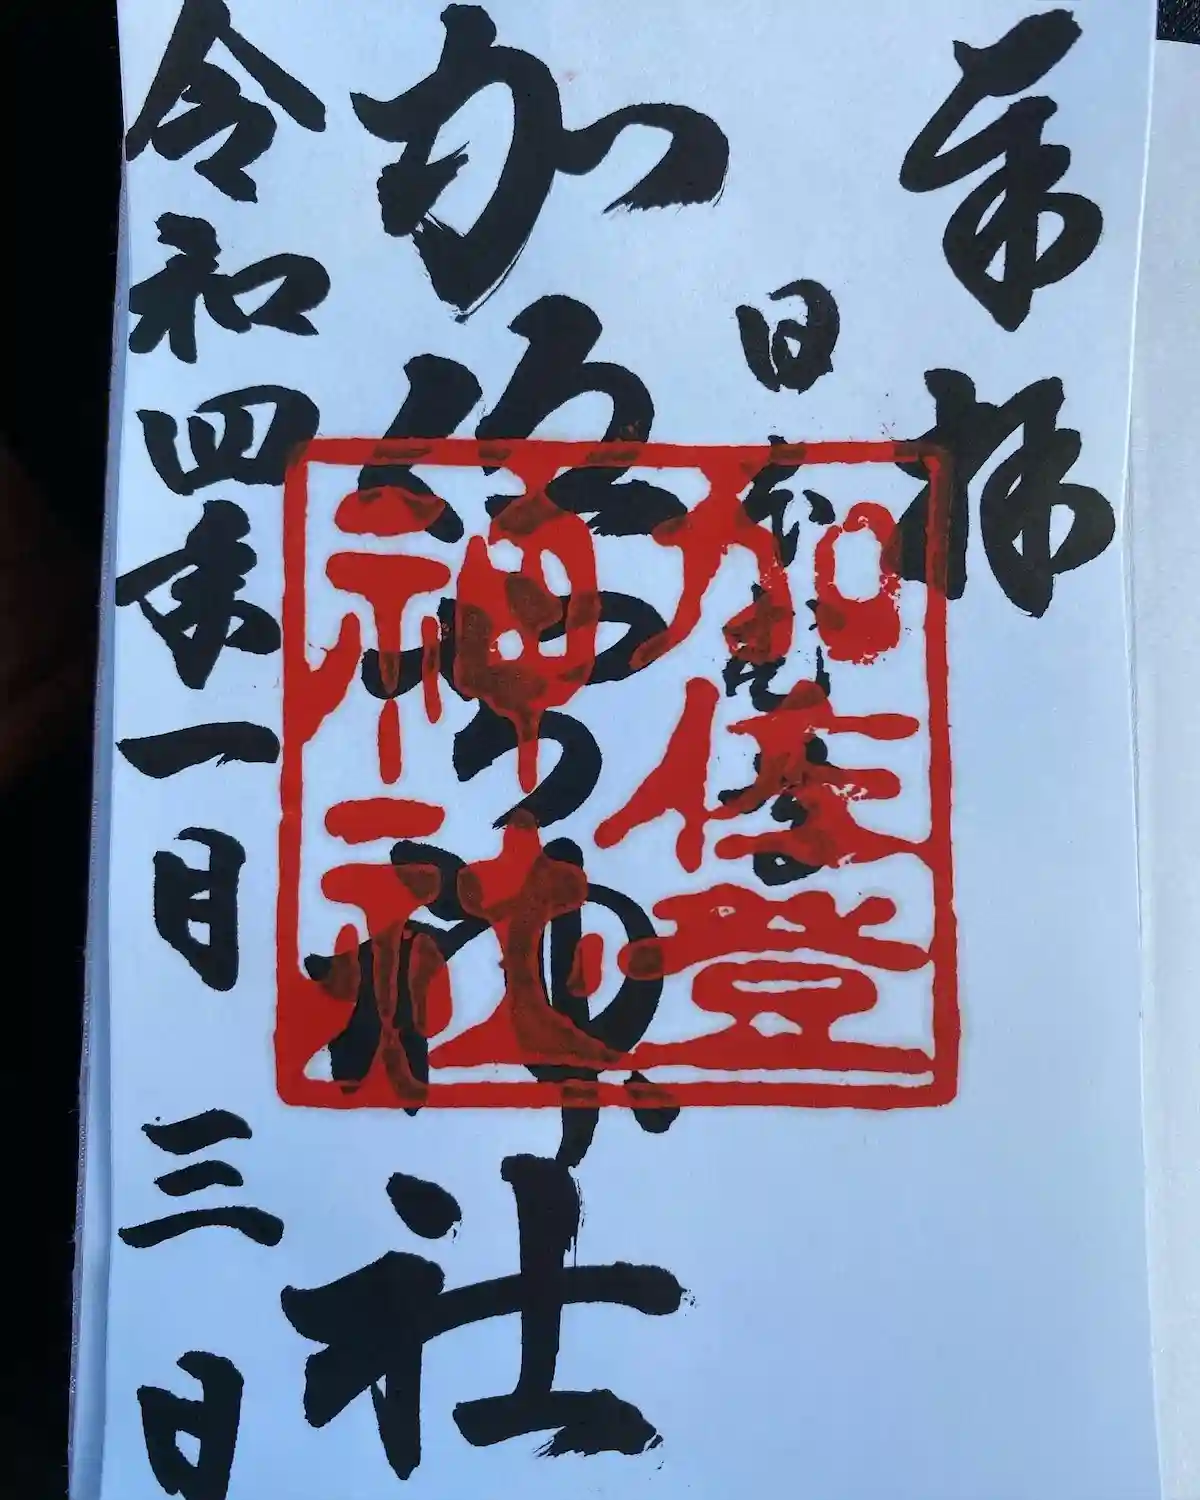 奉拝
日本武尊
加佐登神社
加佐登
神社
令和四年一月三日